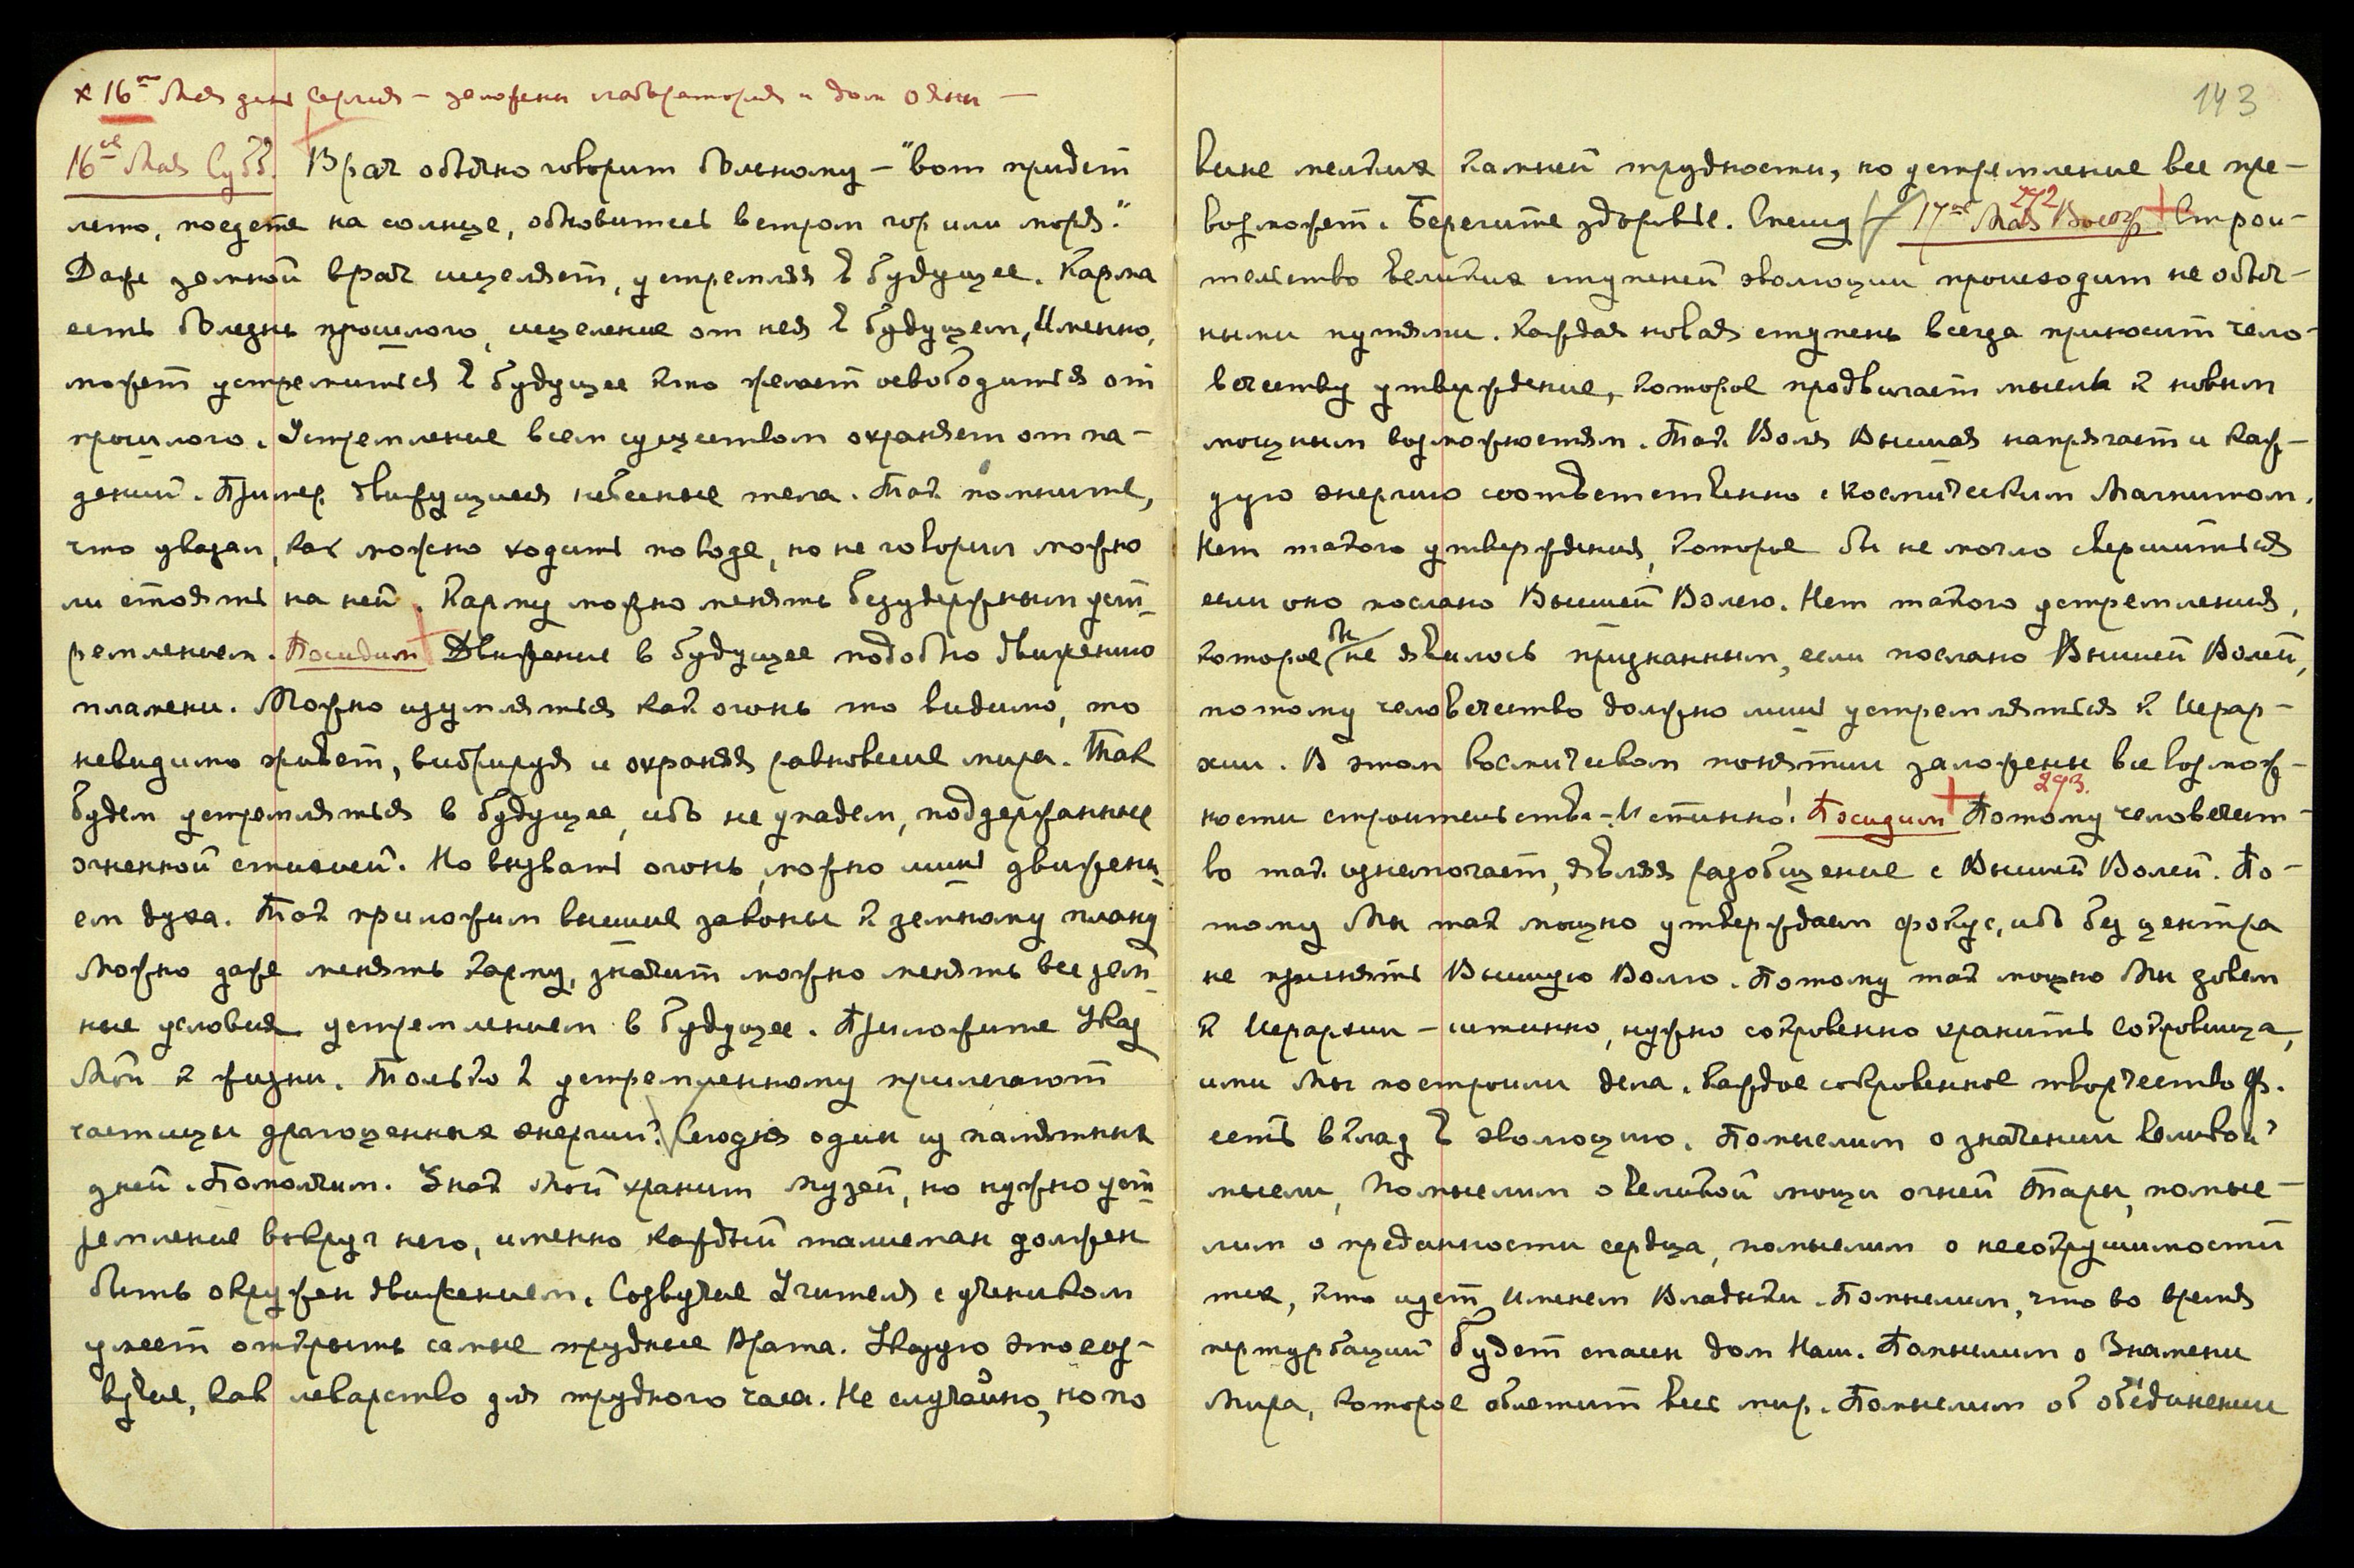 x 16го Мая день Сергия – заложены лаборатория и дом Ояны –
16ое Мая Субб. Врач обычно говорит больному – "вот придет
лето, поедете на солнце, обновитесь ветром гор или моря."
Даже земной врач исцеляет, устремляя в будущее. Карма
есть болезнь прошлого, исцеление от нея в будущем, Именно,
может устремиться в будущее кто желает освободиться от
прошлого. Устремление всем существом охраняет от па–
дений. Пример движущиеся небесные тела. Так помните,
что указал, как можно ходить по воде, но не говорил можно
ли стоять на ней. Карму можно менять безудержным уст–
ремлением. Посидим Движение в будущее подобно движению
пламени. Можно изумляться как огонь то видимо, то
невидимо живет, вибрируя и охраняя равновесие мира. Так
будем устремляться в будущее, ибо не упадем, поддержанные
огненной стихией. Но вызвать огонь можно лишь движени–
ем духа. Так приложим высшие законы к земному плану
Можно даже менять карму, значит можно менять все зем–
ные условия устремлением в будущее. Приложите Указ
Мой к жизни. Только к устремленному прилегают
частицы драгоценных энергий. Сегодня один из памятных
дней. Помолчим. Знак Мой хранит музей, но нужно уст–
ремление вокруг него, именно каждый талисман должен
быть окружен движением. Созвучие Учителя с учеником
умеет открыть самые трудные Врата. Указую это соз–
вучие, как лекарство для трудного часа. Не случайно, но по
143
висне мелких камней трудности, но устремление все пре–
возможет. Берегите здоровье. Спешу
272
17ое Мая Воскр Строи–
тельство великих ступеней эволюции происходит не обыч–
ными путями. Каждая новая ступень всегда приносит чело–
вечеству утверждение, которое продвигает мысль к новым
мощным возможностям. Так Воля Высшая напрягает и каж–
дую энергию соответственно с космическим Магнитом.
Нет такого утверждения, которое бы не могло свершиться
если оно послано Высшей Волею. Нет такого устремления,
которое бы не явилось признанным, если послано Высшей Волей,
потому человечество должно лишь устремляться к Иерар–
хии. В этом космическом понятии заложены все возмож–
ности строительства. Истинно! Посидим
293.
Потому человечест–
во так изнемогает, являя разобщение с Высшей Волей. По–
тому Мы так мощно утверждаем фокус, ибо без центра
не принять Высшую Волю. Потому так мощно Мы зовем
к Иерархии – истинно, нужно сокровенно хранить сокровища,
ими Мы построили дела. Каждое сокровенное творчество Ф.
есть вклад в эволюцию. Помыслим о значении великой
мысли, помыслим о великой мощи огней Тары, помыс–
лим о преданности сердца, помыслим о несокрушимости
тех, кто идет Именем Владыки. Помыслим, что во время
пертурбаций будет спасен дом Наш. Помыслим о Знамени
Мира, которое облетит весь мир. Помыслим об объединении